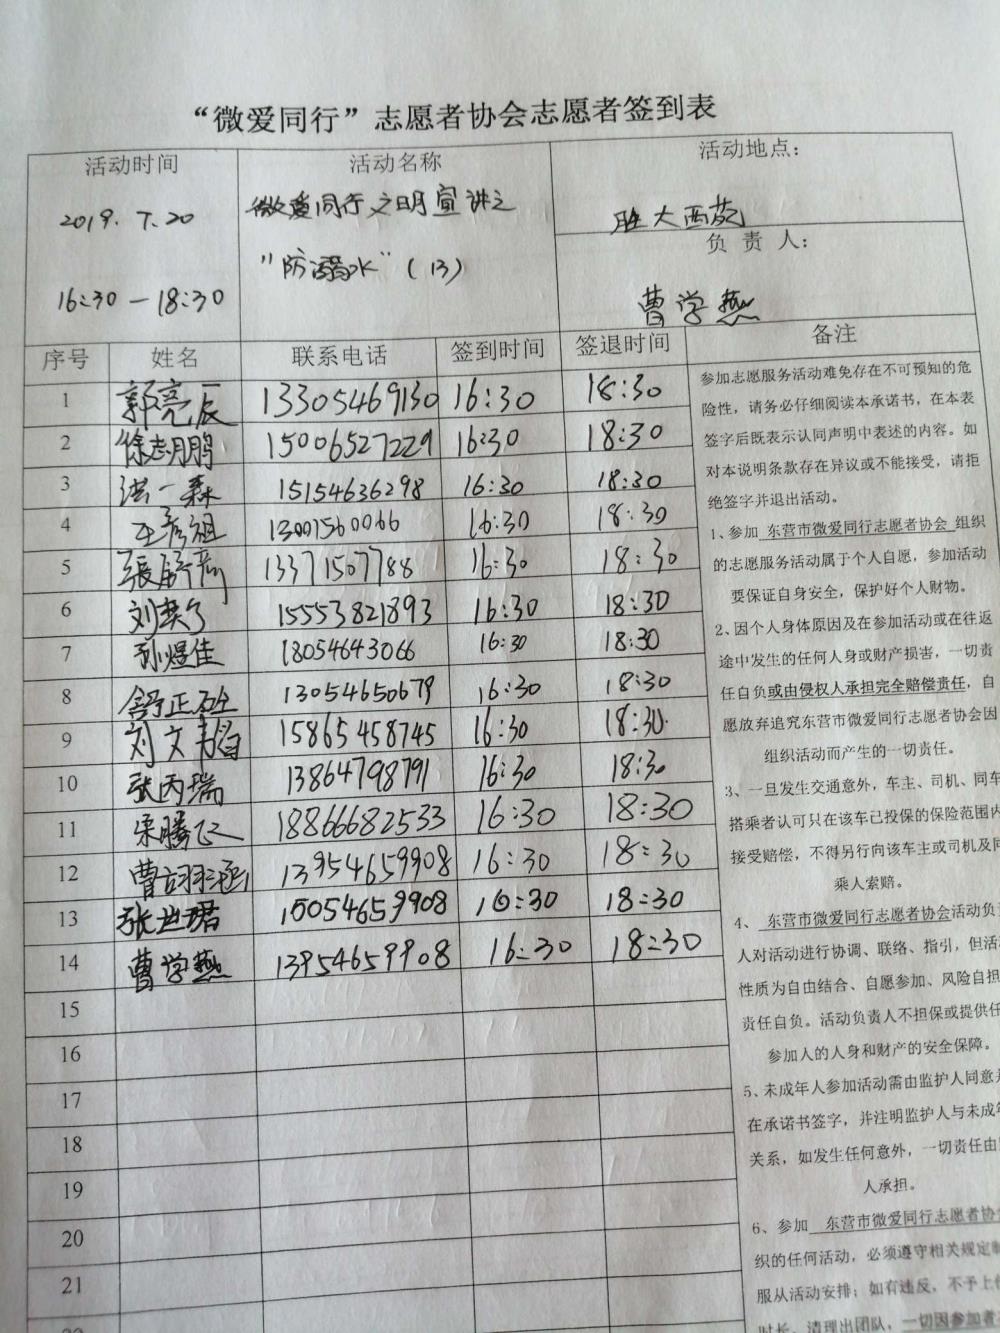 “微爱同行”志愿者协会志愿者签到表
活动时间 活动名称 活动地点：
2019. 7. 20 微爱同行文明宣讲之 胜大西苑
"防溺水"（13） 负 责 人：
16:30 — 18:30 曹学燕
序号 姓名 联系电话 签到时间 签退时间 备注
1 郭亮辰 13305469130 16:30 18:30
2 徐志鹏 15006527229 16:30 18:30
3 洪一森 15154636298 16:30 18:30
4 王彦祖 13001560066 16:30 18:30
5 13371507788 16:30 18:30
6 15553821893 16:30 18:30
7 孙煜佳 18054643066 16:30 18:30
8 舒正 13054650679 16:30 18:30
9 刘文韬 15865458745 16:30 18:30
10 张丙瑞 13864798791 16:30 18:30
11 栾腾飞 18866682533 16:30 18:30
12 曹诩涵 13954659908 16:30 18:30
13 张世珺 18054659908 16:30 18:30
14 曹学燕 13954659908 16:30 18:30
15
16
17
18
19
20
21
参加志愿服务活动难免存在不可预知的危
险性，请务必仔细阅读本承诺书，在本表
签字后既表示认同声明中表述的内容。如
对本说明条款存在异议或不能接受，请拒
绝签字并退出活动。
1、参加 东营市微爱同行志愿者协会 组织
的志愿服务活动属于个人自愿，参加活动
要保证自身安全，保护好个人财物。
2、因个人身体原因及在参加活动或在往返
途中发生的任何人身或财产损害，一切责
任自负或由侵权人承担完全赔偿责任，自
愿放弃追究东营市微爱同行志愿者协会因
组织活动而产生的一切责任。
3、一旦发生交通意外，车主、司机、同车
搭乘者认可只在该车已投保的保险范围内
接受赔偿，不得另行向该车主或司机及同
乘人索赔。
4、 东营市微爱同行志愿者协会活动负
人对活动进行协调、联络、指引，但活
性质为自由结合、自愿参加、风险自担
责任自负。活动负责人不担保或提供任
参加人的人身和财产的安全保障。
5、未成年人参加活动需由监护人同意并
在承诺书签字，并注明监护人与未成年
关系，如发生任何意外，一切责任由
人承担。
6、参加 东营市微爱同行志愿者协
织的任何活动，必须遵守相关规定制
服从活动安排；如有违反，不予上
时长、清理出团队，一切因参加者